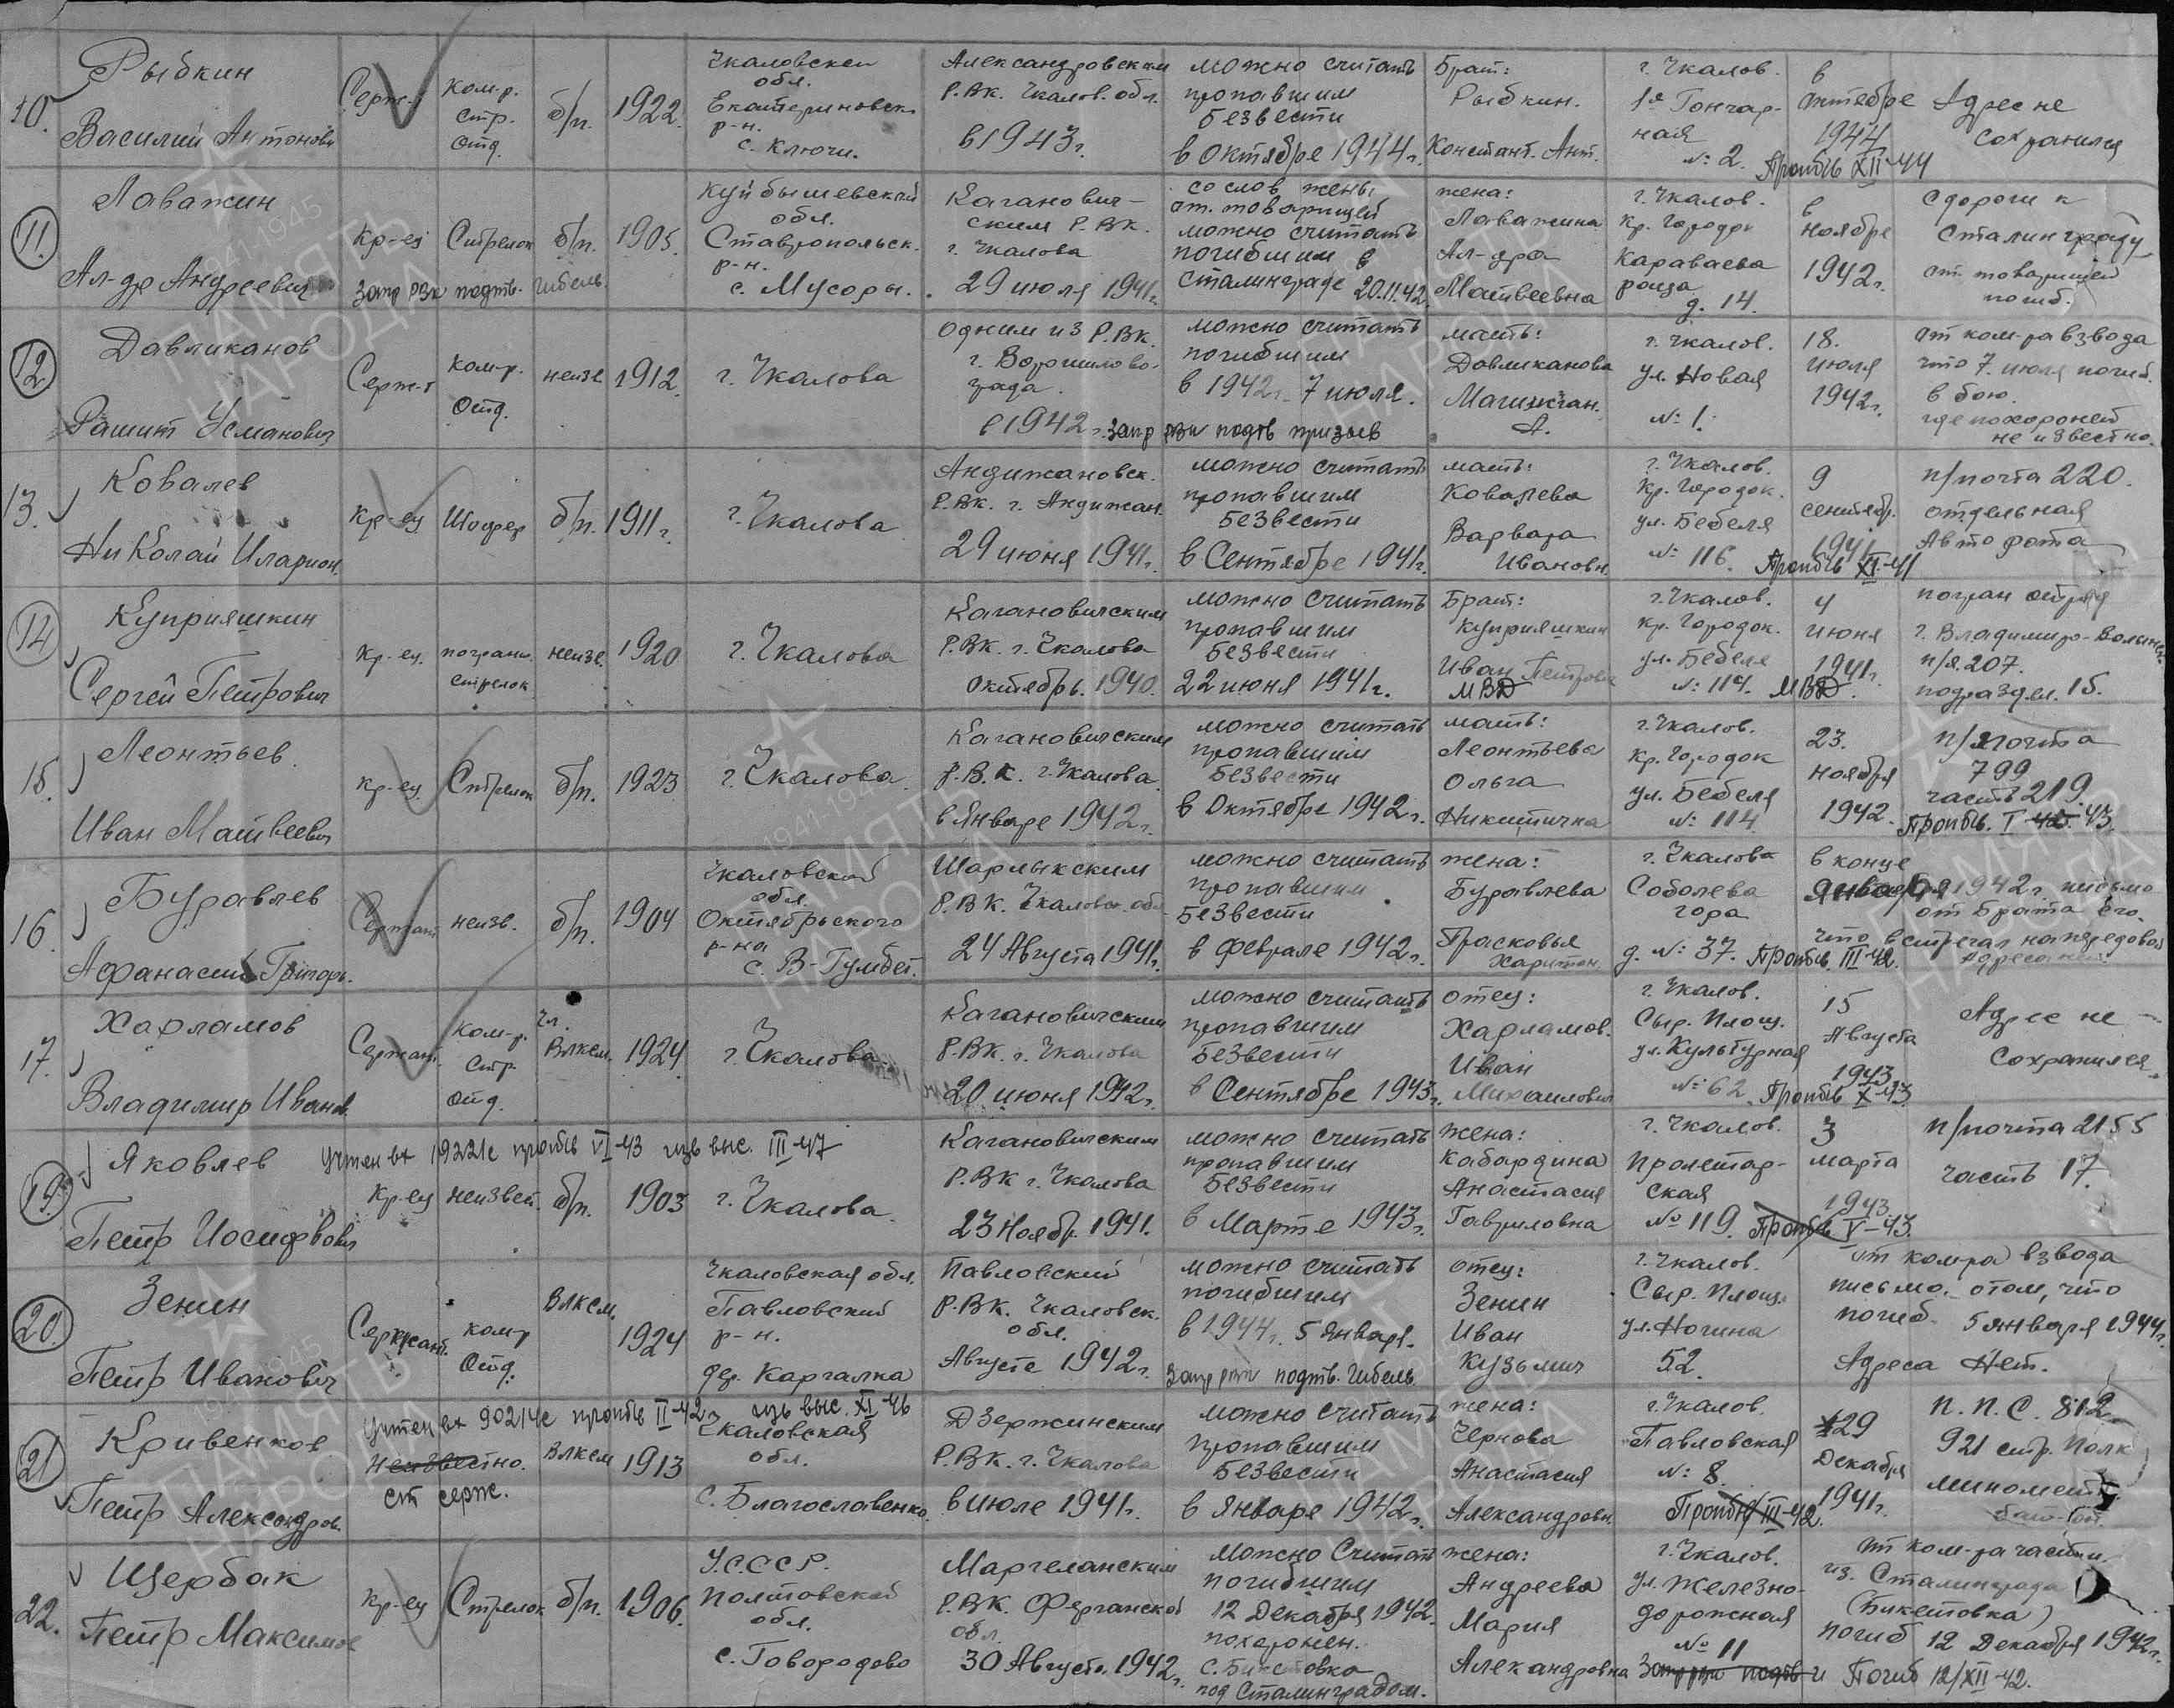 10. Рыбкин
Василий Антонови
Серж.
ком-р.
стр.
отд.
б/п.
1922.
Чкаловской
обл.
Екатериновск.
р-н.
с. Ключи.
Александровским
Р.ВК. Чкалов. обл.
в 1943 г.
можно считать
пропавшим
безвести
в Октябре 1944 г.
Брат:
Рыбкин.
Констант. Ант.
г. Чкалов.
1я Гончар-
ная
№ 2.
в
октябре
1944
Пропбв XII-44
Адрес не
сохранился
11. Лаважин
Ал-др Андреевич
кр-ец
Стрелок
б/п.
1905.
запр рвк подтв. гибель
Куйбышевской
обл.
Ставропольск.
р-н.
с. Мусоры.
Каганович-
ским Р.ВК.
г. Чкалова
29 июля 1941 г.
со слов жены
от. товарищей
можно считать
погибшим в
Сталинграде 20.11.42
жена:
Лаважина
Ал-дра
Матвеевна
г. Чкалов.
кр. Городок
Караваева
роща
д. 14.
в
ноябре
1942 г.
с дороги к
Сталинграду
от товарищей
погиб.
12. Давликанов
Рашит Усманович
Серж-т
ком-р.
Отд.
неизв
1912.
г. Чкалова
Одним из Р.ВК.
г. Ворошилово-
града.
в 1942 г. запр рвк подтв призыв
можно считать
погибшим
в 1942 г. 7 июля.
мать:
Довликанова
А.
г. Чкалов.
ул. Новая
№ 1.
18.
июля
1942 г.
от ком-ра взвода
что 7. июля погиб.
в бою.
где похоронен
не известно.
13. Ковалев
Николай Иларион.
кр-ец
Шофер
б/п.
1911 г.
г. Чкалова
Андижановск.
Р.ВК. г. Андижан.
29 июня 1941 г.
можно считать
пропавшим
безвести
в Сентябре 1941 г.
мать:
Ковалева
Варвара
Ивановн.
г. Чкалов.
кр. Городок.
ул. Бебеля
№ 116.
9
сентябр.
1941
Пропбв XI-41
п/почта 220.
отдельная
Авто рота
14. Куприяшкин
Сергей Петрович
кр-ец.
погран.
стрелок
неизв.
1920
г. Чкалова
Кагановичским
Р.ВК. г. Чкалова
Октябрь. 1940.
можно считать
пропавшим
безвести
22 июня 1941 г.
Брат:
Куприяшкин
Иван Петрович
МВД
г. Чкалов.
кр. Городок.
ул. Бебеля
№ 114. МВД.
4
июня
1941 г.
погран отряд
г. Владимиро-Волынск.
п/я. 207.
подраздел. 15.
15. Леонтьев
Иван Матвеевич
кр-ец.
Стрелок
б/п.
1923
г. Чкалова.
Кагановичским
Р.В.К. г. Чкалова.
в Январе 1942 г.
можно считать
пропавшим
безвести
в Октябре 1942 г.
мать:
Леонтьева
Ольга
Никитична
г. Чкалов.
кр. Городок
ул. Бебеля
№ 114.
23.
ноября
1942.
п/почта
799
часть 219.
Пропбв. I 43.
16. Буравлев
Афанасий Григорь.
Сержант
неизв.
б/п.
1904
Чкаловской
обл.
Октябрьского
р-на
с. В-Гумбет.
Шарлыкским
Р.ВК. Чкаловск. обл.
24 Августа 1941 г.
можно считать
пропавшим
безвести
в феврале 1942 г.
жена:
Буравлева
Прасковья
Харитон.
г. Чкалова
Соболева
гора
д. № 37. Пропбв. III-42.
в конце
Января 1942 г. письмо
от брата его.
что встречал на передовой
адреса нет.
17. Харламов
Владимир Иванов.
Сержант.
ком-р.
стр.
отд.
Чл.
Влксм.
1924
г. Чкалова.
Кагановичским
Р.ВК. г. Чкалова
20 июня 1942 г.
можно считать
пропавшим
безвести
в Сентябре 1943 г.
отец:
Харламов.
Иван
Михаилович
г. Чкалов.
Сыр. Площ.
ул. Культурная
№ 62. Пропбв X-43
15
Августа
1943
Адрес не
Сохранился.
19. Яковлев
учтен вх 19221с пропбв VI-43 изв выс. III-47
Петр Иосифович
кр-ец
неизвест.
б/п.
1903
г. Чкалова.
Кагановичским
Р.ВК г. Чкалова
23 Ноябр. 1941.
можно считать
пропавшим
безвести
в Марте 1943 г.
жена:
Кабардина
Анастасия
Гавриловна
г. Чкалов.
Пролетар-
ская
№ 119. Пропбв V-43.
3
марта
1943
п/почта 2155
часть 17.
20. Зенин
Петр Иванович
Сержант.
ком-р
Отд.
Влксм.
1924
Чкаловская обл.
Павловский
р-н.
дер. Каргалка
Павловский
Р.ВК. Чкаловск.
обл.
Августе 1942 г.
можно считать
погибшим
в 1944 г. 5 января.
запр рвк подтв. гибель
отец:
Зенин
Иван
Кузьмич
г. Чкалов.
Сыр. Площ.
ул. Ногина
52.
от ком-ра взвода
письмо, о том, что
погиб. 5 января 1944 г.
Адреса Нет.
21. Кривенков
учтен вх 90214с пропбв II-42 г изв выс. XI-46
Петр Александров.
неизвестно.
ст серж.
Влксм
1913
Чкаловская
обл.
с. Благославенко.
Дзержинским
Р.ВК. г. Чкалова
в июле 1941 г.
можно считать
пропавшим
безвести
в Январе 1942 г.
жена:
Чернова
Анастасия
Александровн.
г. Чкалов.
Павловская
№ 8.
Пропбв III-42.
29
Декабря
1941 г.
П. П. С. 812
921 стр. Полк
миномет
бат-он.
22. Щербак
Петр Максимов
кр-ец
Стрелок
б/п.
1906.
У.С.С.Р.
Полтовской
обл.
с. Говородово
Маргеланским
Р.ВК. Ферганской
обл.
30 Августа. 1942 г.
Можно Считат
погибшим
12 Декабря 1942.
похоронен.
с. Бикетовка
под Сталинградом.
жена:
Андреева
Мария
Александровна
г. Чкалов.
ул. Железно-
дорожная
№ 11
Запр рвк подтв
от ком-ра части
из. Сталинграда
(Бикетовка)
погиб 12 Декабря 1942 г.
Погиб 12/XII-42.
1941-1945
ПАМЯТЬ
НАРОДА